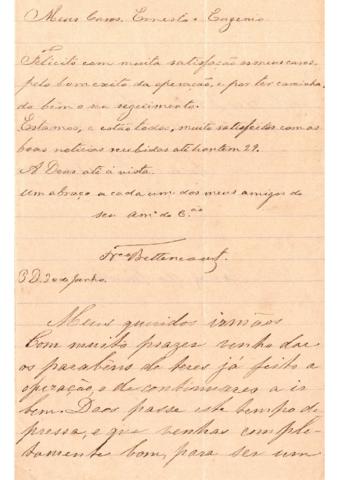 Meus Caros. Ernesto e Eugenio
Felicito com muita satisfação os meus caros,
pelo bom exito da operação, e por ter caminha
do bem o seu seguimento.
Estamos, e estão todos, muito satisfeitos com as
boas noticias recebidas até hontem 29.
A Deos até á vista.
um abraço a cada um dos meus amigos do
seu amº do C.
Bettencourt.
30 de Junho.
Meus queridos irmãos
Com muito prazer venho dar
os parabens de teres já feito a
operação, e de continuares a ir
bem. Deos passe este tempo de
pressa, e que venhas comple-
tamente bom, para ser um